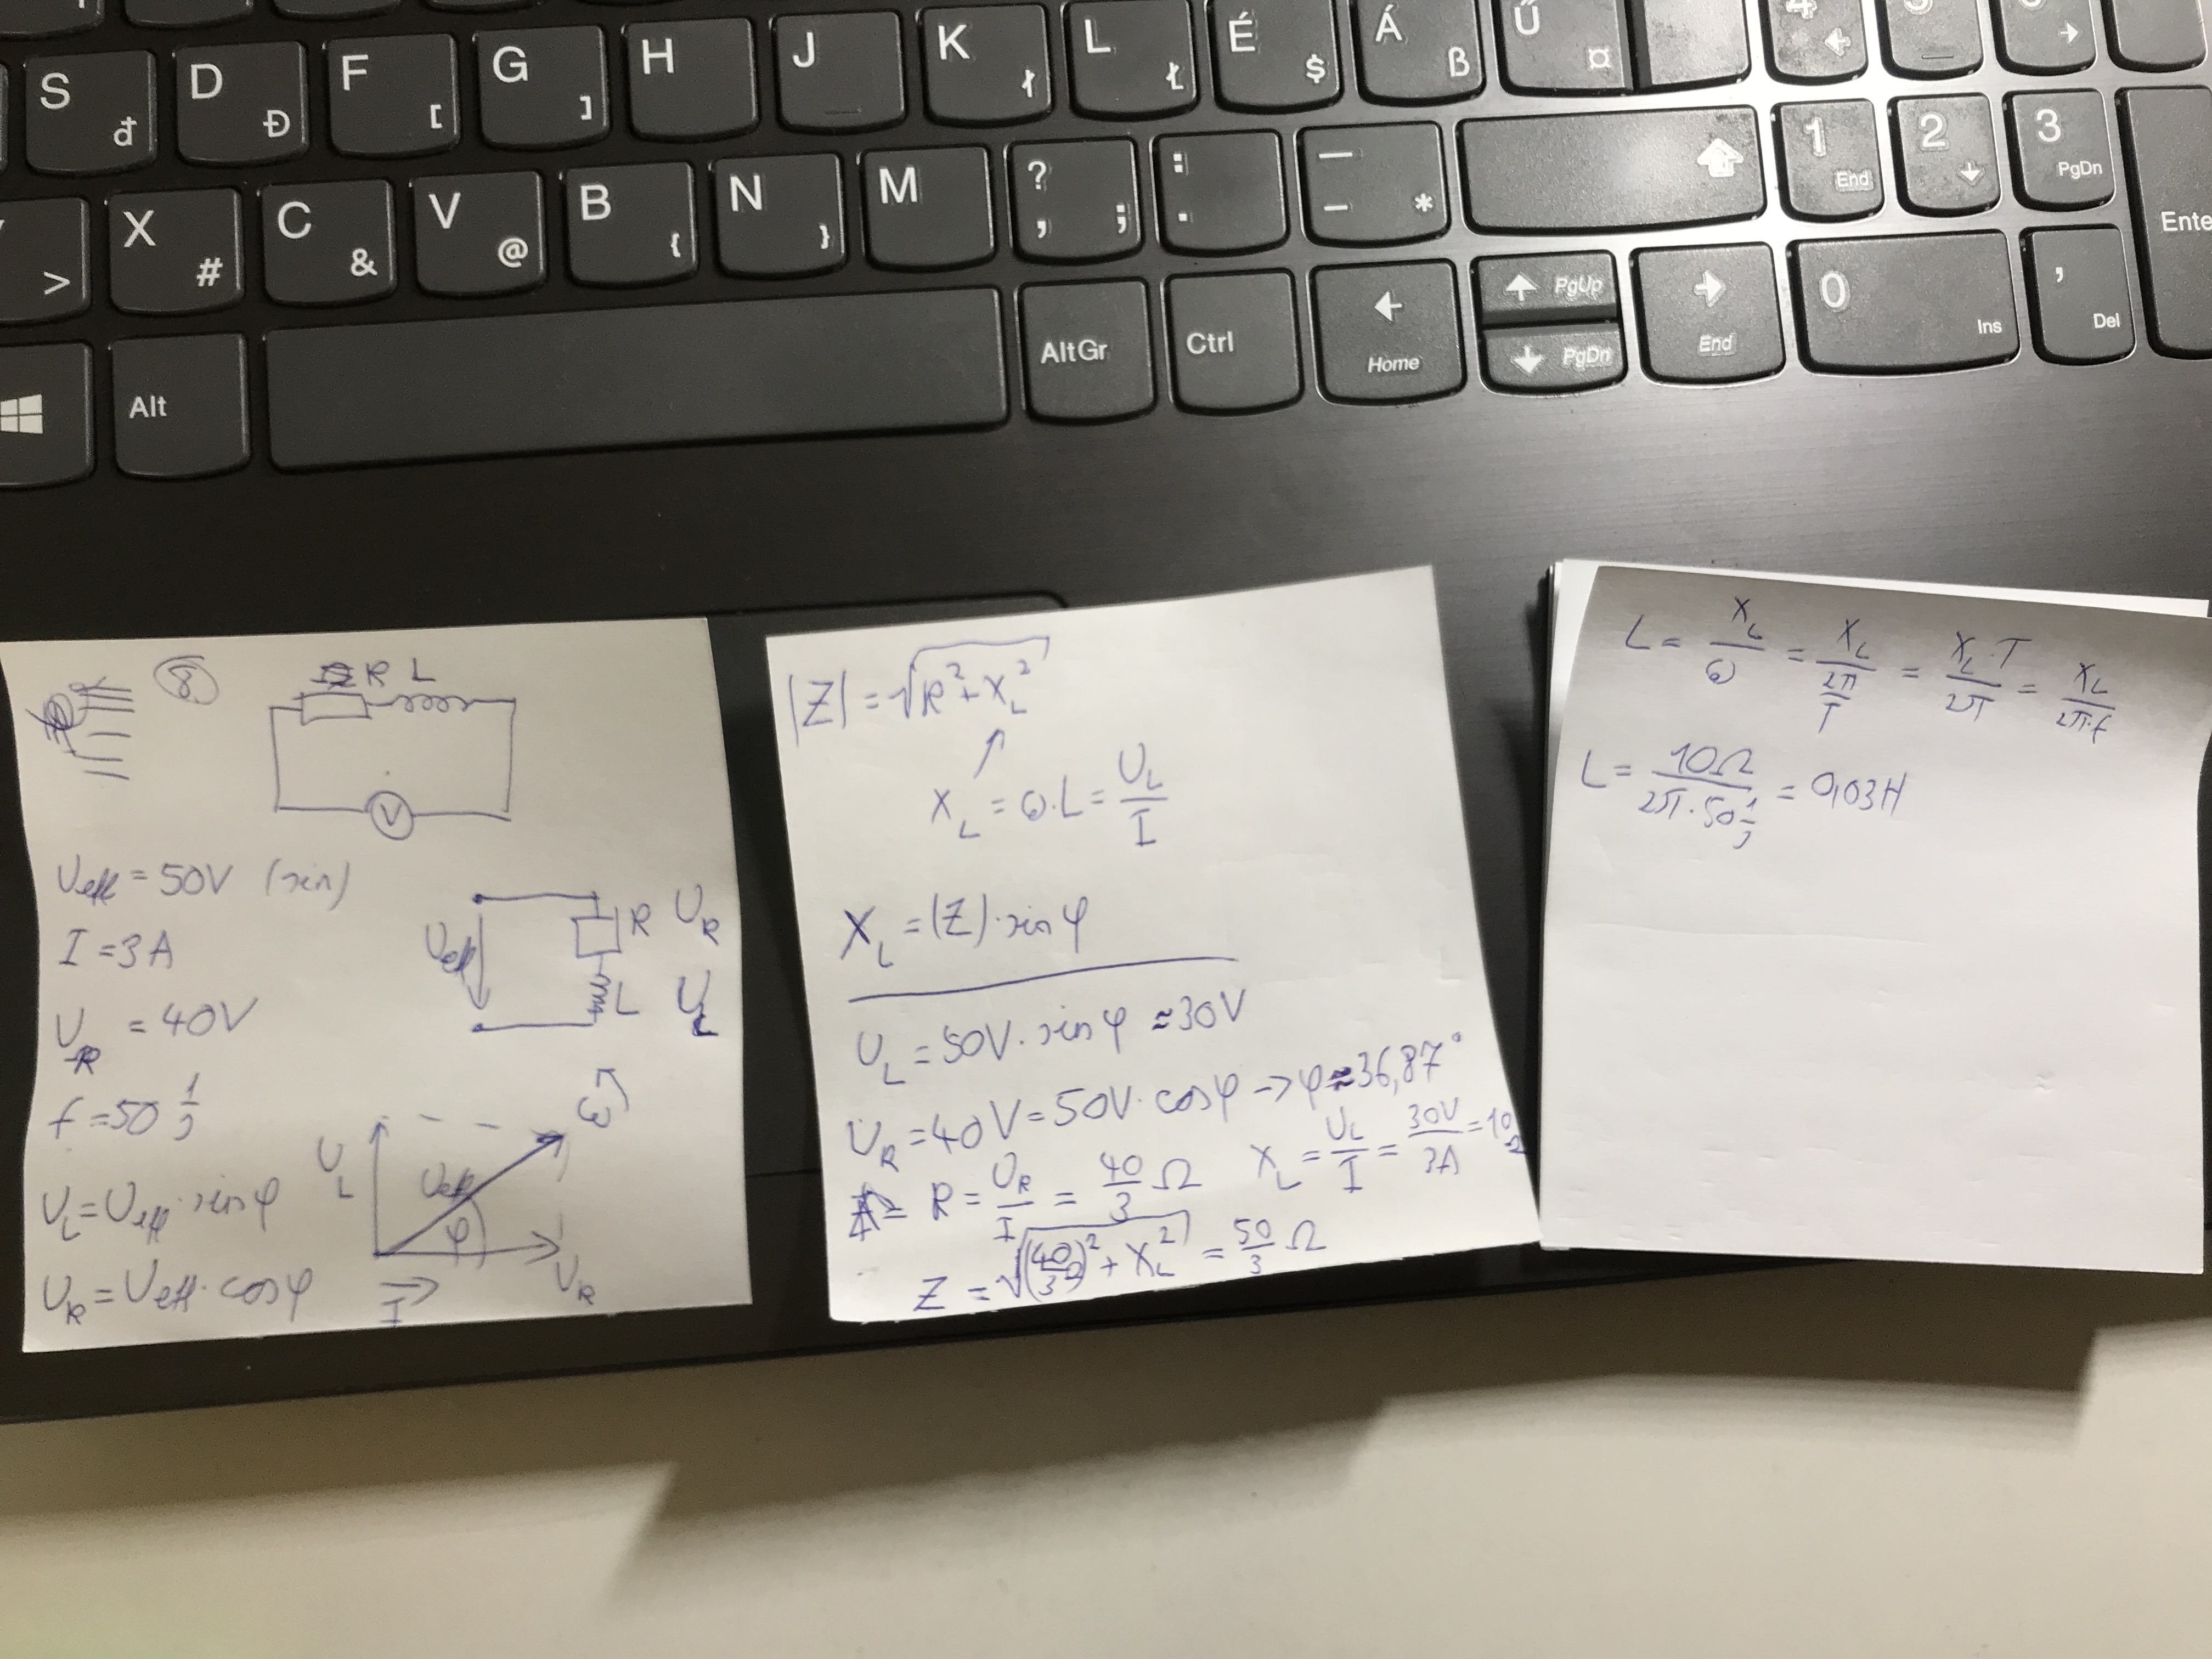 S đ D Đ F [ G ] H J K ł L Ł É $ Á ß Ű ¤ 4
> X # C & V @ B { N } M ? , ; : . - _ * 1 End 2 3 PgDn
Alt AltGr Ctrl Home PgUp PgDn End 0 Ins , Del Ente
8. R L
V
Ueff = 50V (sin)
I = 3A
U_R = 40V
f = 50 1/s
U_L = Ueff · sin φ
U_R = Ueff · cos φ
Ueff R U_R
L U_L
ω
U_L Ueff φ
I U_R
|Z| = √(R² + X_L²)
X_L = ω · L = U_L/I
X_L = (Z) · sin φ
U_L = 50V · sin φ ≈ 30V
U_R = 40V = 50V · cos φ → φ ≈ 36,87°
R = U_R/I = 40/3 Ω X_L = U_L/I = 30V/3A = 10Ω
Z = √((40/3 Ω)² + X_L²) = 50/3 Ω
L = X_L/ω = X_L/(2π/T) = X_L · T/2π = X_L/(2π·f)
L = 10Ω/(2π · 50 1/s) = 0,03H